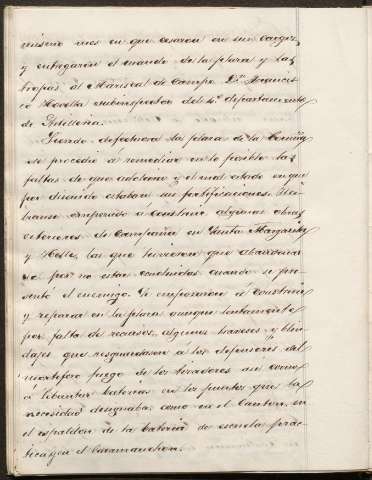 mismo mes en que cesaron en sus cargos
y entregaron el mando de la plaza y las
tropas al Mariscal de Campo Dn. Francis-
co Novella subinspector del 4º departamento
de Artilleria.
Siendo defectuosa la plaza de la Coruña
se procedio a remediar en lo posible las
faltas de que adolecian y el mal estado en que
por descuido estaban sus fortificaciones. Ha-
bianse empezado á construir algunas obras
exteriores de Campaña en Santa Margarita
y Nelle, las que tuvieron que abandonar-
se por no estar concluidas cuando se pre-
sentó el enemigo. Se empezaron á construir
y reparar en la plaza aunque lentamente
por falta de recursos, algunos traveses y blin-
dajes que resguardasen á los defensores del
mortifero fuego de los tiradores asi como
á levantar baterias en los puntos que la
necesidad designaba, como en el Canton, en
el espaldon de la bateria de escuela prac-
tica y en el Caramanchon.